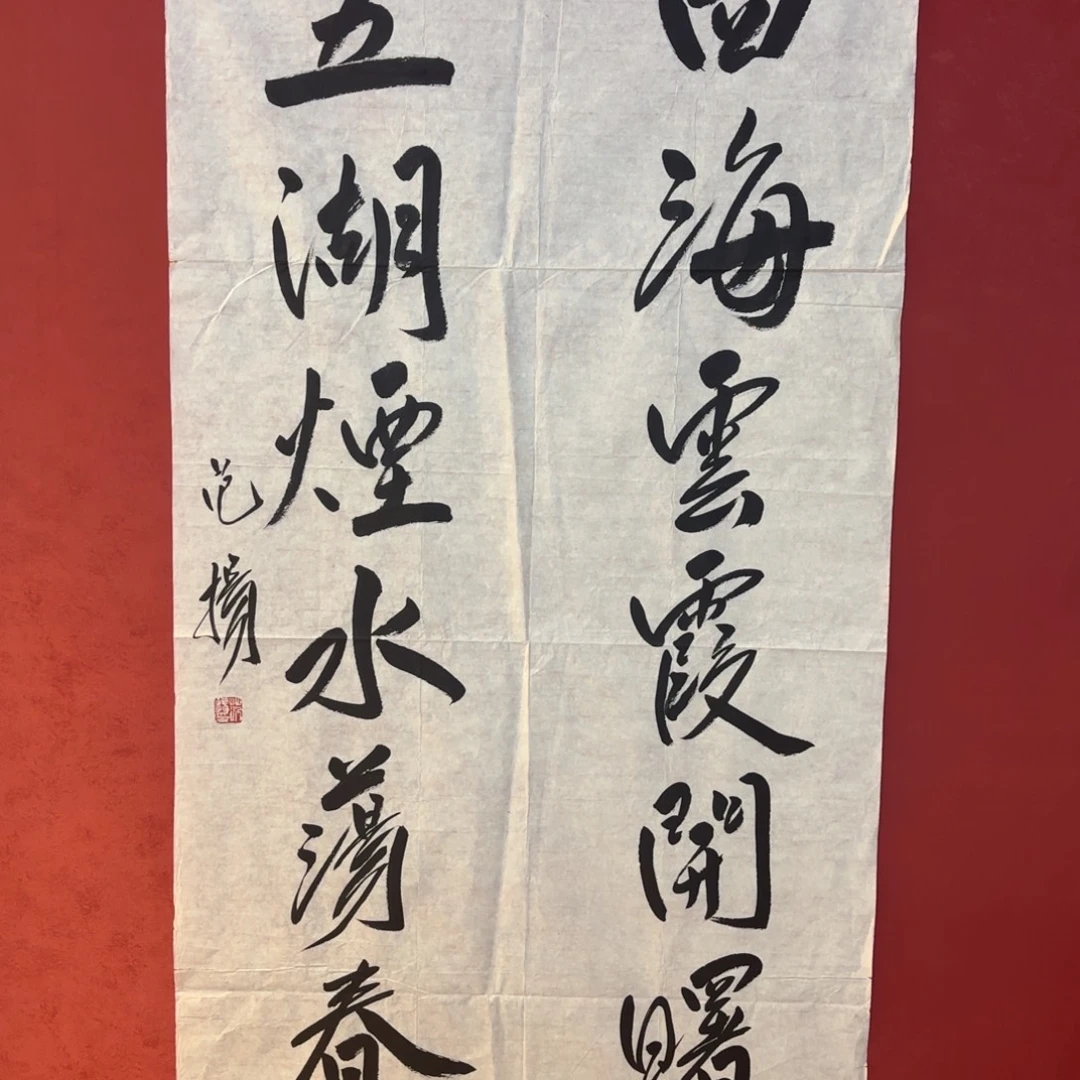 四海雲霞開曙
五湖煙水蕩春
范